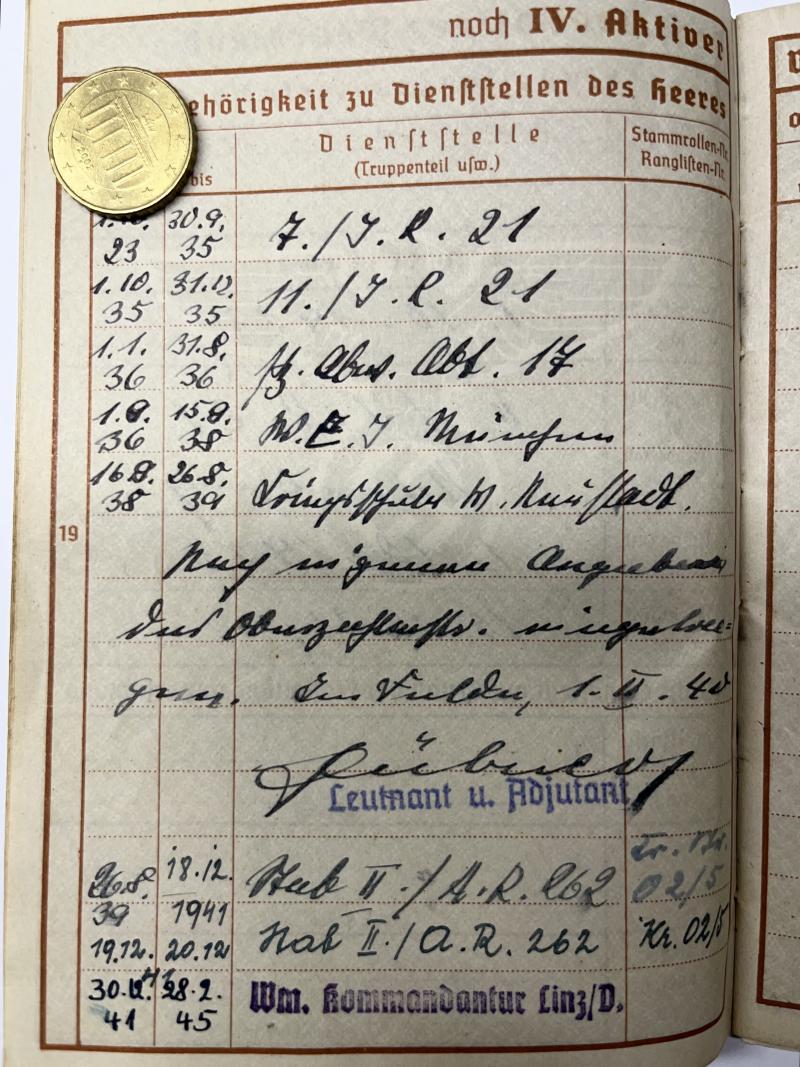 noch IV. Aktiver
ehörigkeit zu Dienststellen des Heeres
bis
Dienststelle
(Truppenteil usw.)
Stammrollen-Nr.
Ranglisten-Nr.
1.10. 23 30.9. 35 7./I.R. 21
1.10. 35 31.12. 35 11./I.R. 21
1.1. 36 31.8. 36 Pz. Abw. Abt. 17
1.9. 36 15.9. 38 W.E.I. München
16.9. 38 26.8. 39 Kriegsschule W. Neustadt.
19
Nach eigenen Angaben
des Oberzahlmstr. eingetra=
gen. Im Felde, 1. II. 40
Leutnant u. Adjutant
26.8. 39 18.12. 1941 Stab II./A.R. 262 02/5
19.12. 20.12 Stab II./A.R. 262 Kr. 02/5
41 28.2. 45 Wm. Kommandantur Linz/D.